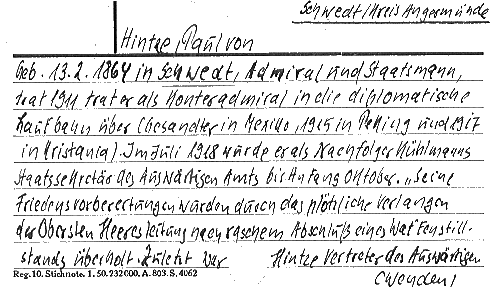 Schwedt/Kreis Angermünde
Hintze, Paul von
Geb. 13.2.1864 in Schwedt, Admiral und Staatsmann,
trat 1911 trat er als Konteradmiral in die diplomatische
Laufbahn über (Gesandter in Mexiko, 1915 in Peking und 1917
in Kristiania). Im Juli 1918 wurde er als Nachfolger Kühlmanns
Staatssekretär des Auswärtigen Amts bis Anfang Oktober. „Seine
Friedensvorbereitungen wurden durch das plötzliche Verlangen
der Obersten Heeresleitung nach raschem Abschluß eines Waffenstill-
stands überholt. Zuletzt war Hintze Vertreter des Auswärtigen
Reg. 10. Stichnote. 1. 50. 232000. A. 803. S. 4062
(wenden!